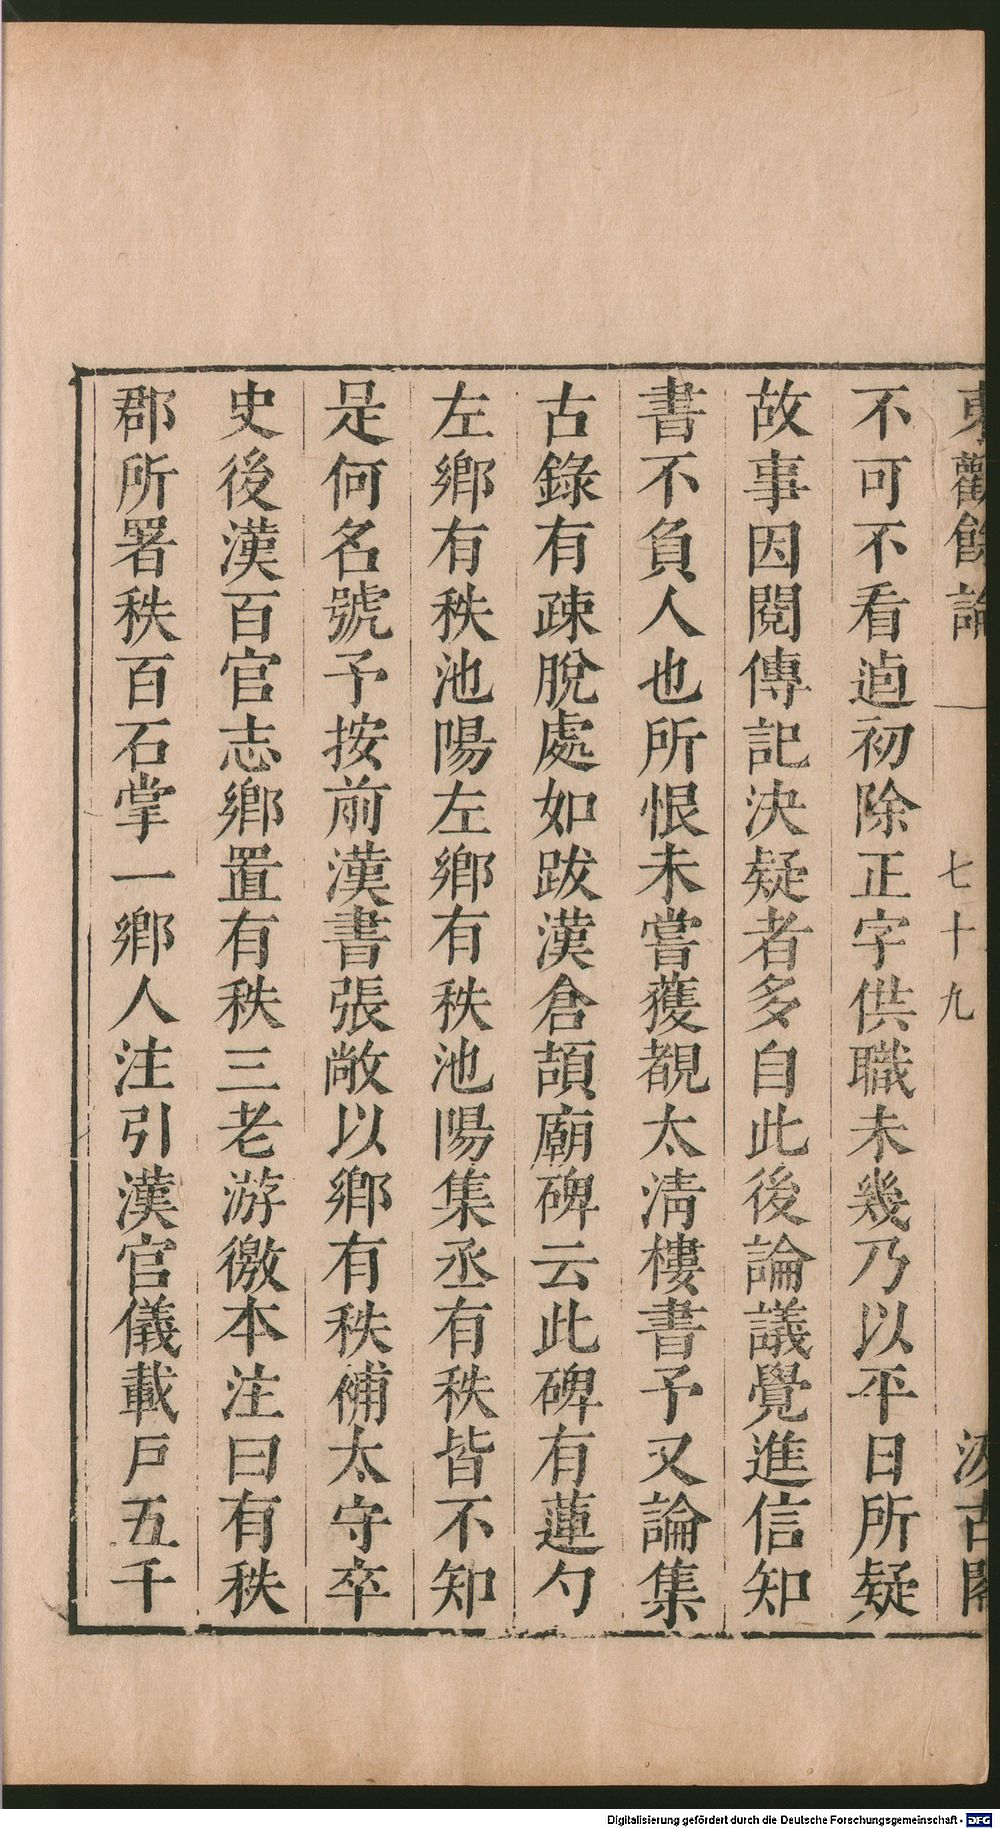 東觀餘論 七十九 汲古閣
不可不看逌初除正字供職未幾乃以平日所疑
故事因閱傳記決疑者多自此後論議覺進信知
書不負人也所恨未嘗獲覩太淸樓書予又論集
古錄有疎脫處如跋漢倉頡廟碑云此碑有蓮勺
左鄉有秩池陽左鄉有秩池陽集丞有秩皆不知
是何名號予按前漢書張敞以鄉有秩補太守卒
史後漢百官志鄉置有秩三老游徼本注曰有秩
郡所署秩百石掌一鄉人注引漢官儀載戸五千
Digitalisierung gefördert durch die Deutsche Forschungsgemeinschaft - DFG